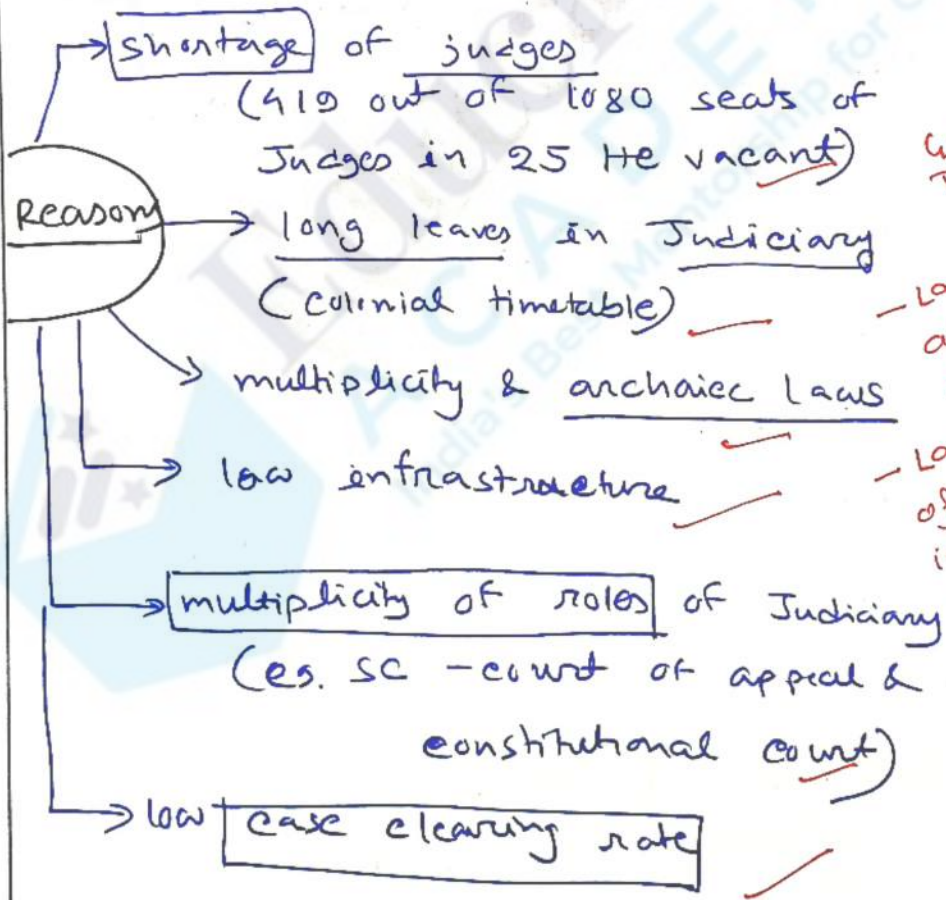 shortage of judges
(419 out of 1080 seats of
Judges in 25 HC vacant)
Reason
long leaves in Judiciary
(colonial timetable)
multiplicity & archaiec laws
low infrastructure
multiplicity of roles of Judiciary
(eg. SC - court of appeal &
constitutional court)
low case clearing rate
Educr
ACADE
India's Best Mentorship for C